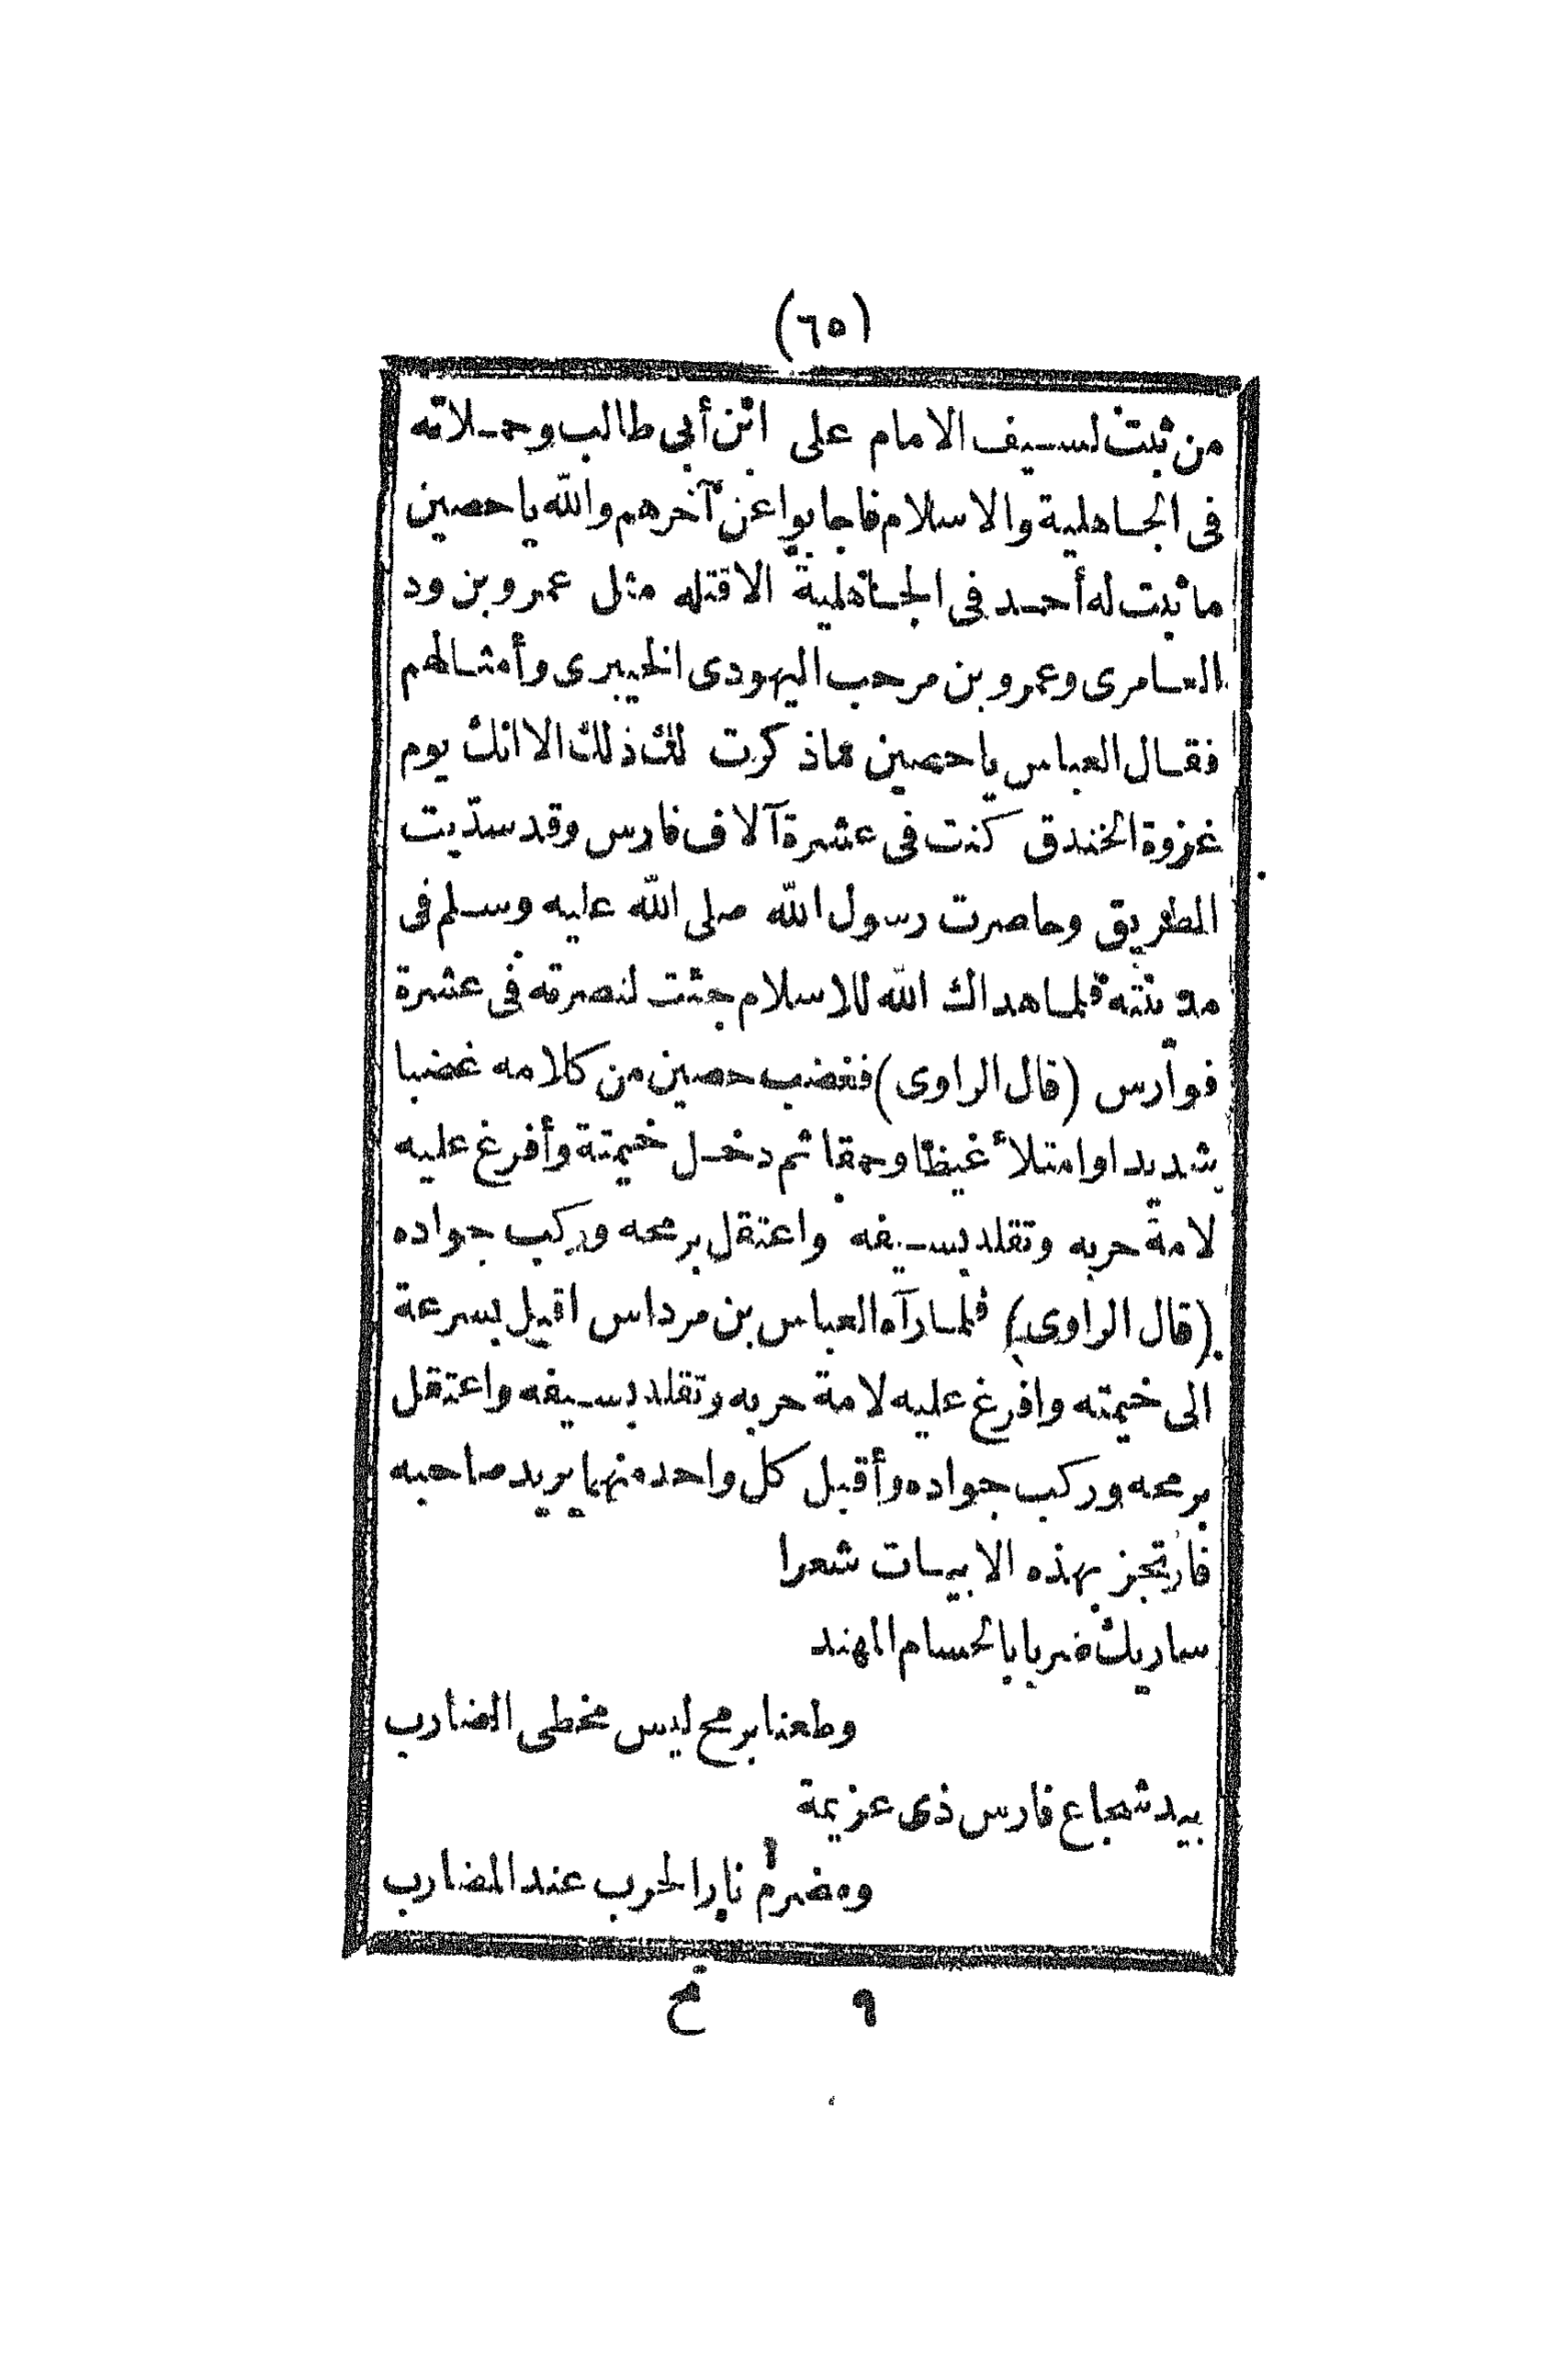 (٦٥)
من ثبت لسيف الامام على ابن أبى طالب وحملاته
فى الجاهلية والاسلام فاجابوا عن آخرهم والله ياحصين
ما ثبت له أحد فى الجاهلية الاقتله مثل عمرو بن ود
العامرى وعمرو بن مرحب اليهودى الخيبرى وأمثالهم
فقال العباس ياحصين ماذكرت لك ذلك الا انك يوم
غزوة الخندق كنت فى عشرة آلاف فارس وقد سدّيت
الطريق وحاصرت رسول الله صلى الله عليه وسلم فى
مدينته فلما هداك الله للاسلام جئت لنصرته فى عشرة
فوارس (قال الراوى) فغضب حصين من كلامه غضبا
شديدا وامتلأ غيظا وحمقا ثم دخل خيمته وأفرغ عليه
لامة حربه وتقلد بسيفه واعتقل برمحه وركب جواده
(قال الراوى) فلما رآه العباس بن مرداس اقبل بسرعة
الى خيمته وافرغ عليه لامة حربه وتقلد بسيفه واعتقل
برمحه وركب جواده وأقبل كل واحد منهما يريد صاحبه
فارتجز بهذه الابيات شعرا
ساريك ضربا بالحسام المهند
وطعنا برمح ليس مخطى المضارب
بيد شجاع فارس ذى عزيمة
ومضرم نار الحرب عند المضارب
٩ مح